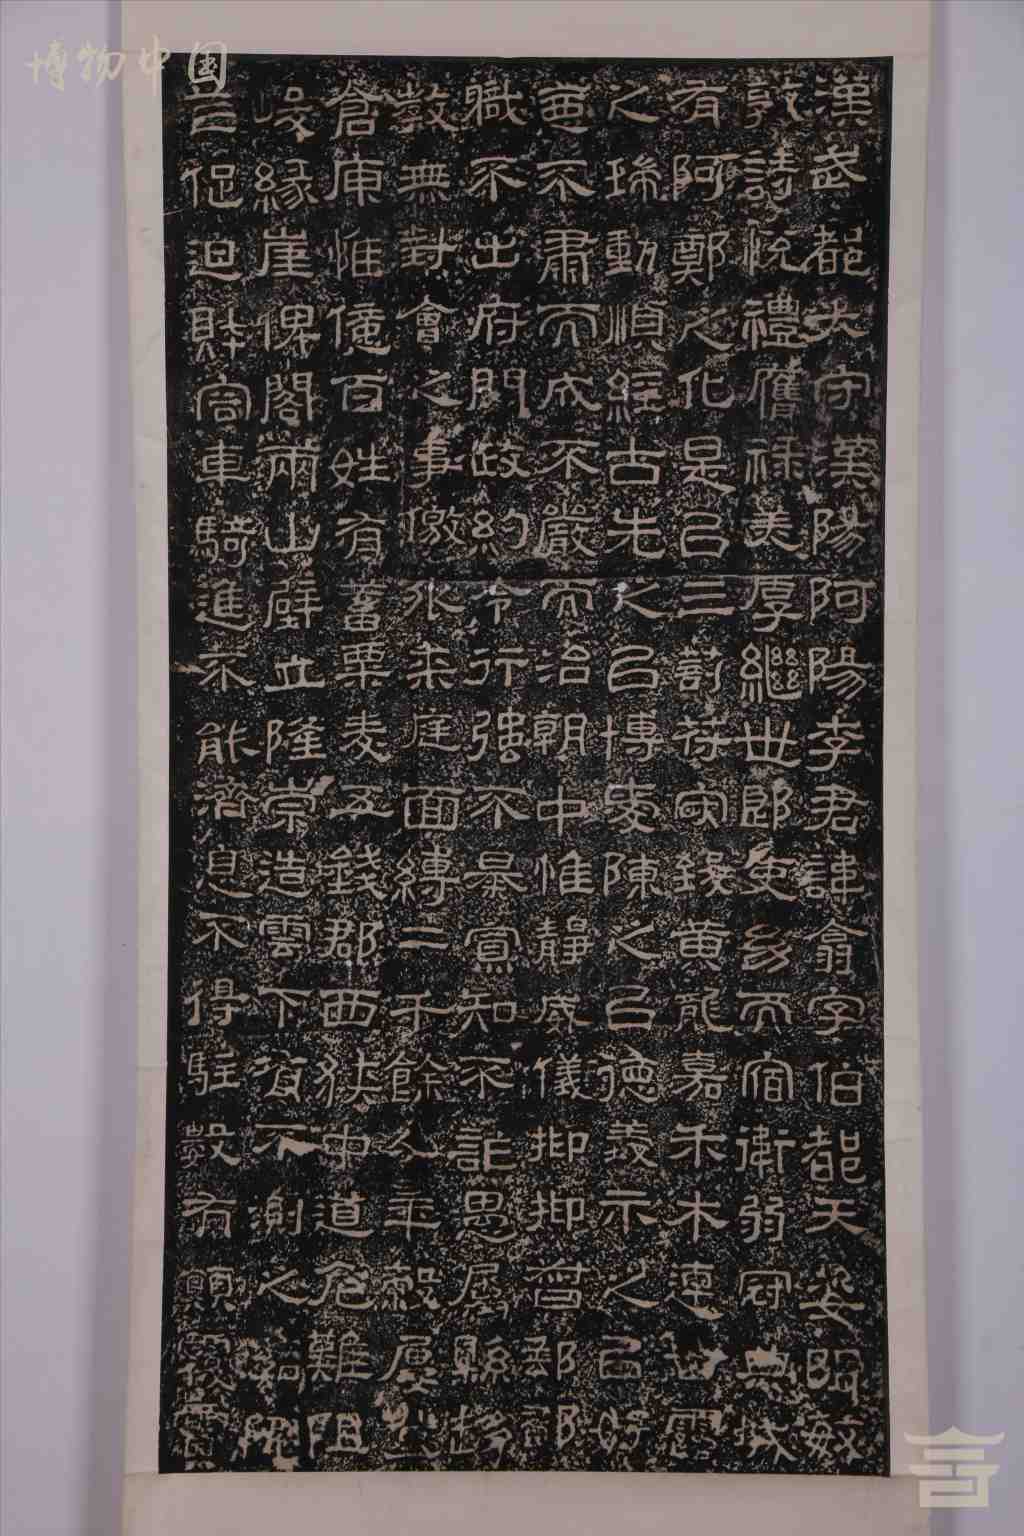 博物中国
漢武都太守漢陽阿陽李君諱翕字伯都天姿明敏
敦詩悅禮膺祿美厚繼世郎吏幼而宿衛弱冠典城
有阿鄭之化是以三剖符守致黃龍嘉禾木連甘露
之瑞動順經古先之以博愛陳之以德義示之以好
惡不肅而成不嚴而治朝中惟靜威儀抑抑督郵部
職不出府門政約令行强不暴寡知不詐愚屬縣趨
教無對會之事徼外來庭面縛二千餘人年穀屢登
倉庾惟億百姓有蓄粟麥五錢郡西狹中道危難阻
峻緣崖俾閣兩山壁立隆崇造雲下有不測之谿阨
芒促迫財容車騎進不能濟息不得駐數有顛覆霣